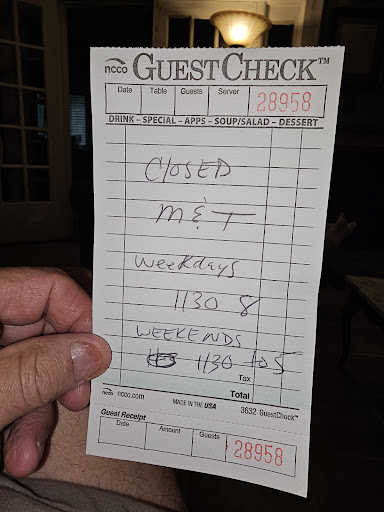 ncco GUESTCHECK™
Date Table Guests Server 28958
DRINK – SPECIAL – APPS – SOUP/SALAD – DESSERT
CLOSED
M & T
Weekdays
1130 8
WEEKENDS
1130 to 5
Tax
Total
ncco ncco.com MADE IN THE USA 3632 GuestCheck™
Guest Receipt
Date Amount Guests 28958